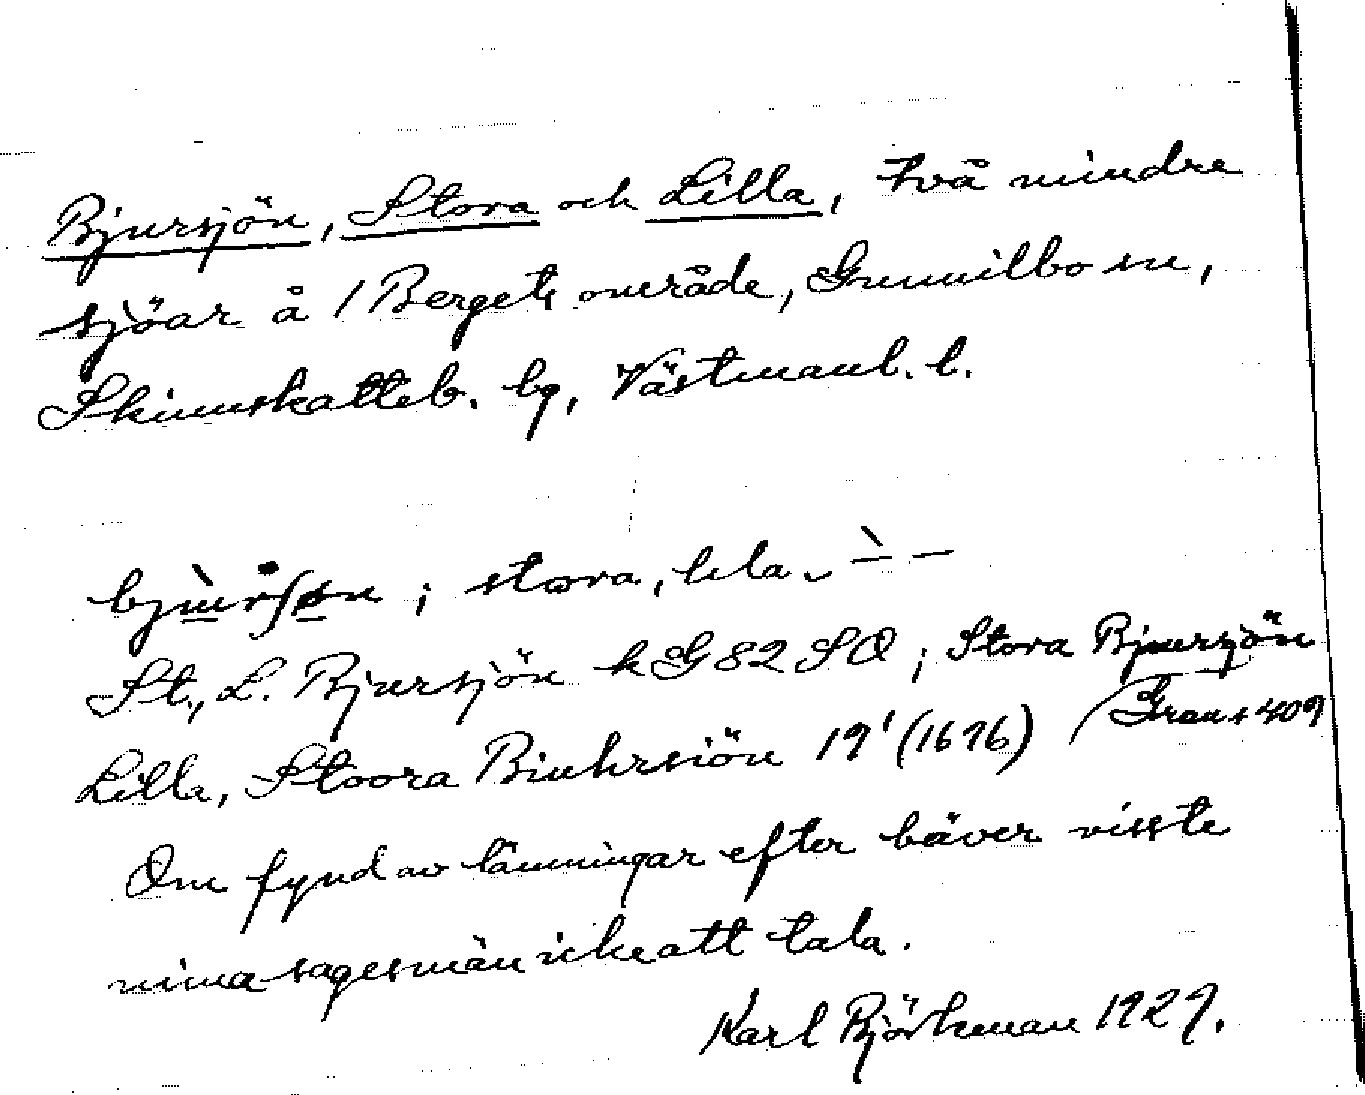 Bjursjön, Stora och Lilla, två mindre
sjöar å 1 Bergets område, Gunnilbo sn,
Skinnskatteb. bg, Västmanl. l.
stora, lila
St., L. Bjursjön k G 82 SO; Stora Bjursjön
Grau s 409
Lilla, Stoora Biuhrsiön 19' (1696)
Om fynd av lämningar efter bäver visste
mina sagesmän icke att tala.
Karl Björkman 1929.